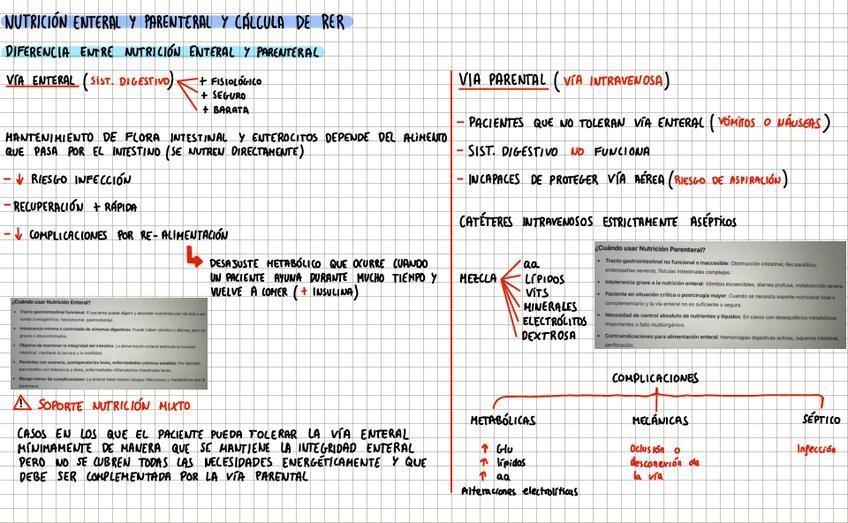 NUTRICIÓN ENTERAL Y PARENTERAL Y CÁLCULA DE RER
DIFERENCIA ENTRE NUTRICIÓN ENTERAL Y PARENTERAL
VÍA ENTERAL (SIST. DIGESTIVO)
+ FISIOLÓGICO
+ SEGURO
+ BARATA
MANTENIMIENTO DE FLORA INTESTINAL Y ENTEROCITOS DEPENDE DEL ALIMENTO
QUE PASA POR EL INTESTINO (SE NUTREN DIRECTAMENTE)
- ↓ RIESGO INFECCIÓN
- RECUPERACIÓN + RÁPIDA
- ↓ COMPLICACIONES POR RE-ALIMENTACIÓN
DESAJUSTE METABÓLICO QUE OCURRE CUANDO
UN PACIENTE AYUNA DURANTE MUCHO TIEMPO Y
VUELVE A COMER (+ INSULINA)
¿Cuándo usar Nutrición Enteral?
• Tracto gastrointestinal funcional: El paciente puede digerir y absorber nutrientes por vía oral o por
sonda (nasogástrica, nasoyeyunal, gastrostomía).
• Intolerancia mínima o controlada de síntomas digestivos: Puede haber vómitos o diarrea, pero no
graves o descontrolados
• Objetivo de mantener la integridad del intestino: La alimentación enteral estimula la mucosa
intestinal, mantiene la barrera y la motilidad
• Pacientes con anorexia, postoperatorios leves, enfermedades crónicas estables: Por ejemplo,
pancreatitis con tolerancia a dieta, enfermedades inflamatorias intestinales leves.
• Riesgo menor de complicaciones: La enteral tiene menos riesgos infecciosos y metabólicos que la
parenteral.
⚠ SOPORTE NUTRICIÓN MIXTO
CASOS EN LOS QUE EL PACIENTE PUEDA TOLERAR LA VÍA ENTERAL
MÍNIMAMENTE DE MANERA QUE SE MANTIENE LA INTEGRIDAD ENTERAL
PERO NO SE CUBREN TODAS LAS NECESIDADES ENERGÉTICAMENTE Y QUE
DEBE SER COMPLEMENTADA POR LA VÍA PARENTAL
VIA PARENTAL (VÍA INTRAVENOSA)
- PACIENTES QUE NO TOLERAN VÍA ENTERAL (VÓMITOS O NÁUSEAS)
- SIST. DIGESTIVO NO FUNCIONA
- INCAPACES DE PROTEGER VÍA AÉREA (RIESGO DE ASPIRACIÓN)
CATÉTERES INTRAVENOSOS ESTRICTAMENTE ASÉPTICOS
MEZCLA
aa
LÍPIDOS
VITS
MINERALES
ELECTRÓLITOS
DEXTROSA
¿Cuándo usar Nutrición Parenteral?
• Tracto gastrointestinal no funcional o inaccesible: Obstrucción intestinal, íleo paralítico,
enteropatías severas, fístulas intestinales complejas.
• Intolerancia grave a la nutrición enteral: Vómitos incoercibles, diarrea profusa, malabsorción severa.
• Paciente en situación crítica o postcirugía mayor: Cuando se necesita soporte nutricional total o
complementario y la vía enteral no es suficiente o segura.
• Necesidad de control absoluto de nutrientes y líquidos: En casos con desequilibrios metabólicos
importantes o fallo multiorgánico.
• Contraindicaciones para alimentación enteral: Hemorragias digestivas activas, isquemia intestinal,
perforación.
COMPLICACIONES
METABÓLICAS
MECÁNICAS
SÉPTICO
↑ Glu
↑ lípidos
↑ aa
Alteraciones electrolíticas
Oclusión o
desconexión de
la vía
Infección